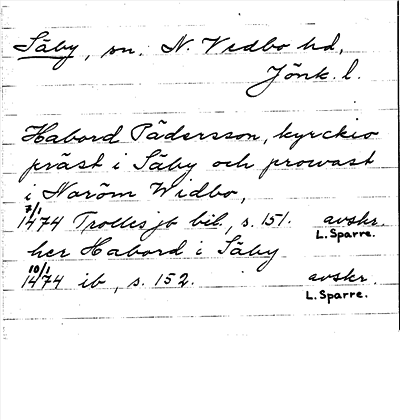 Säby, sn. N. Vedbo hd,
Jönk. l.
Habord Pädersson, kyrckio
präst i Säby och prowast
i Noröm Widbo,
7/1 1474 Trolles jb bil., s. 151. avskr. L. Sparre.
her Habord i Säby
10/1 1474 ib, s. 152. avskr. L. Sparre.